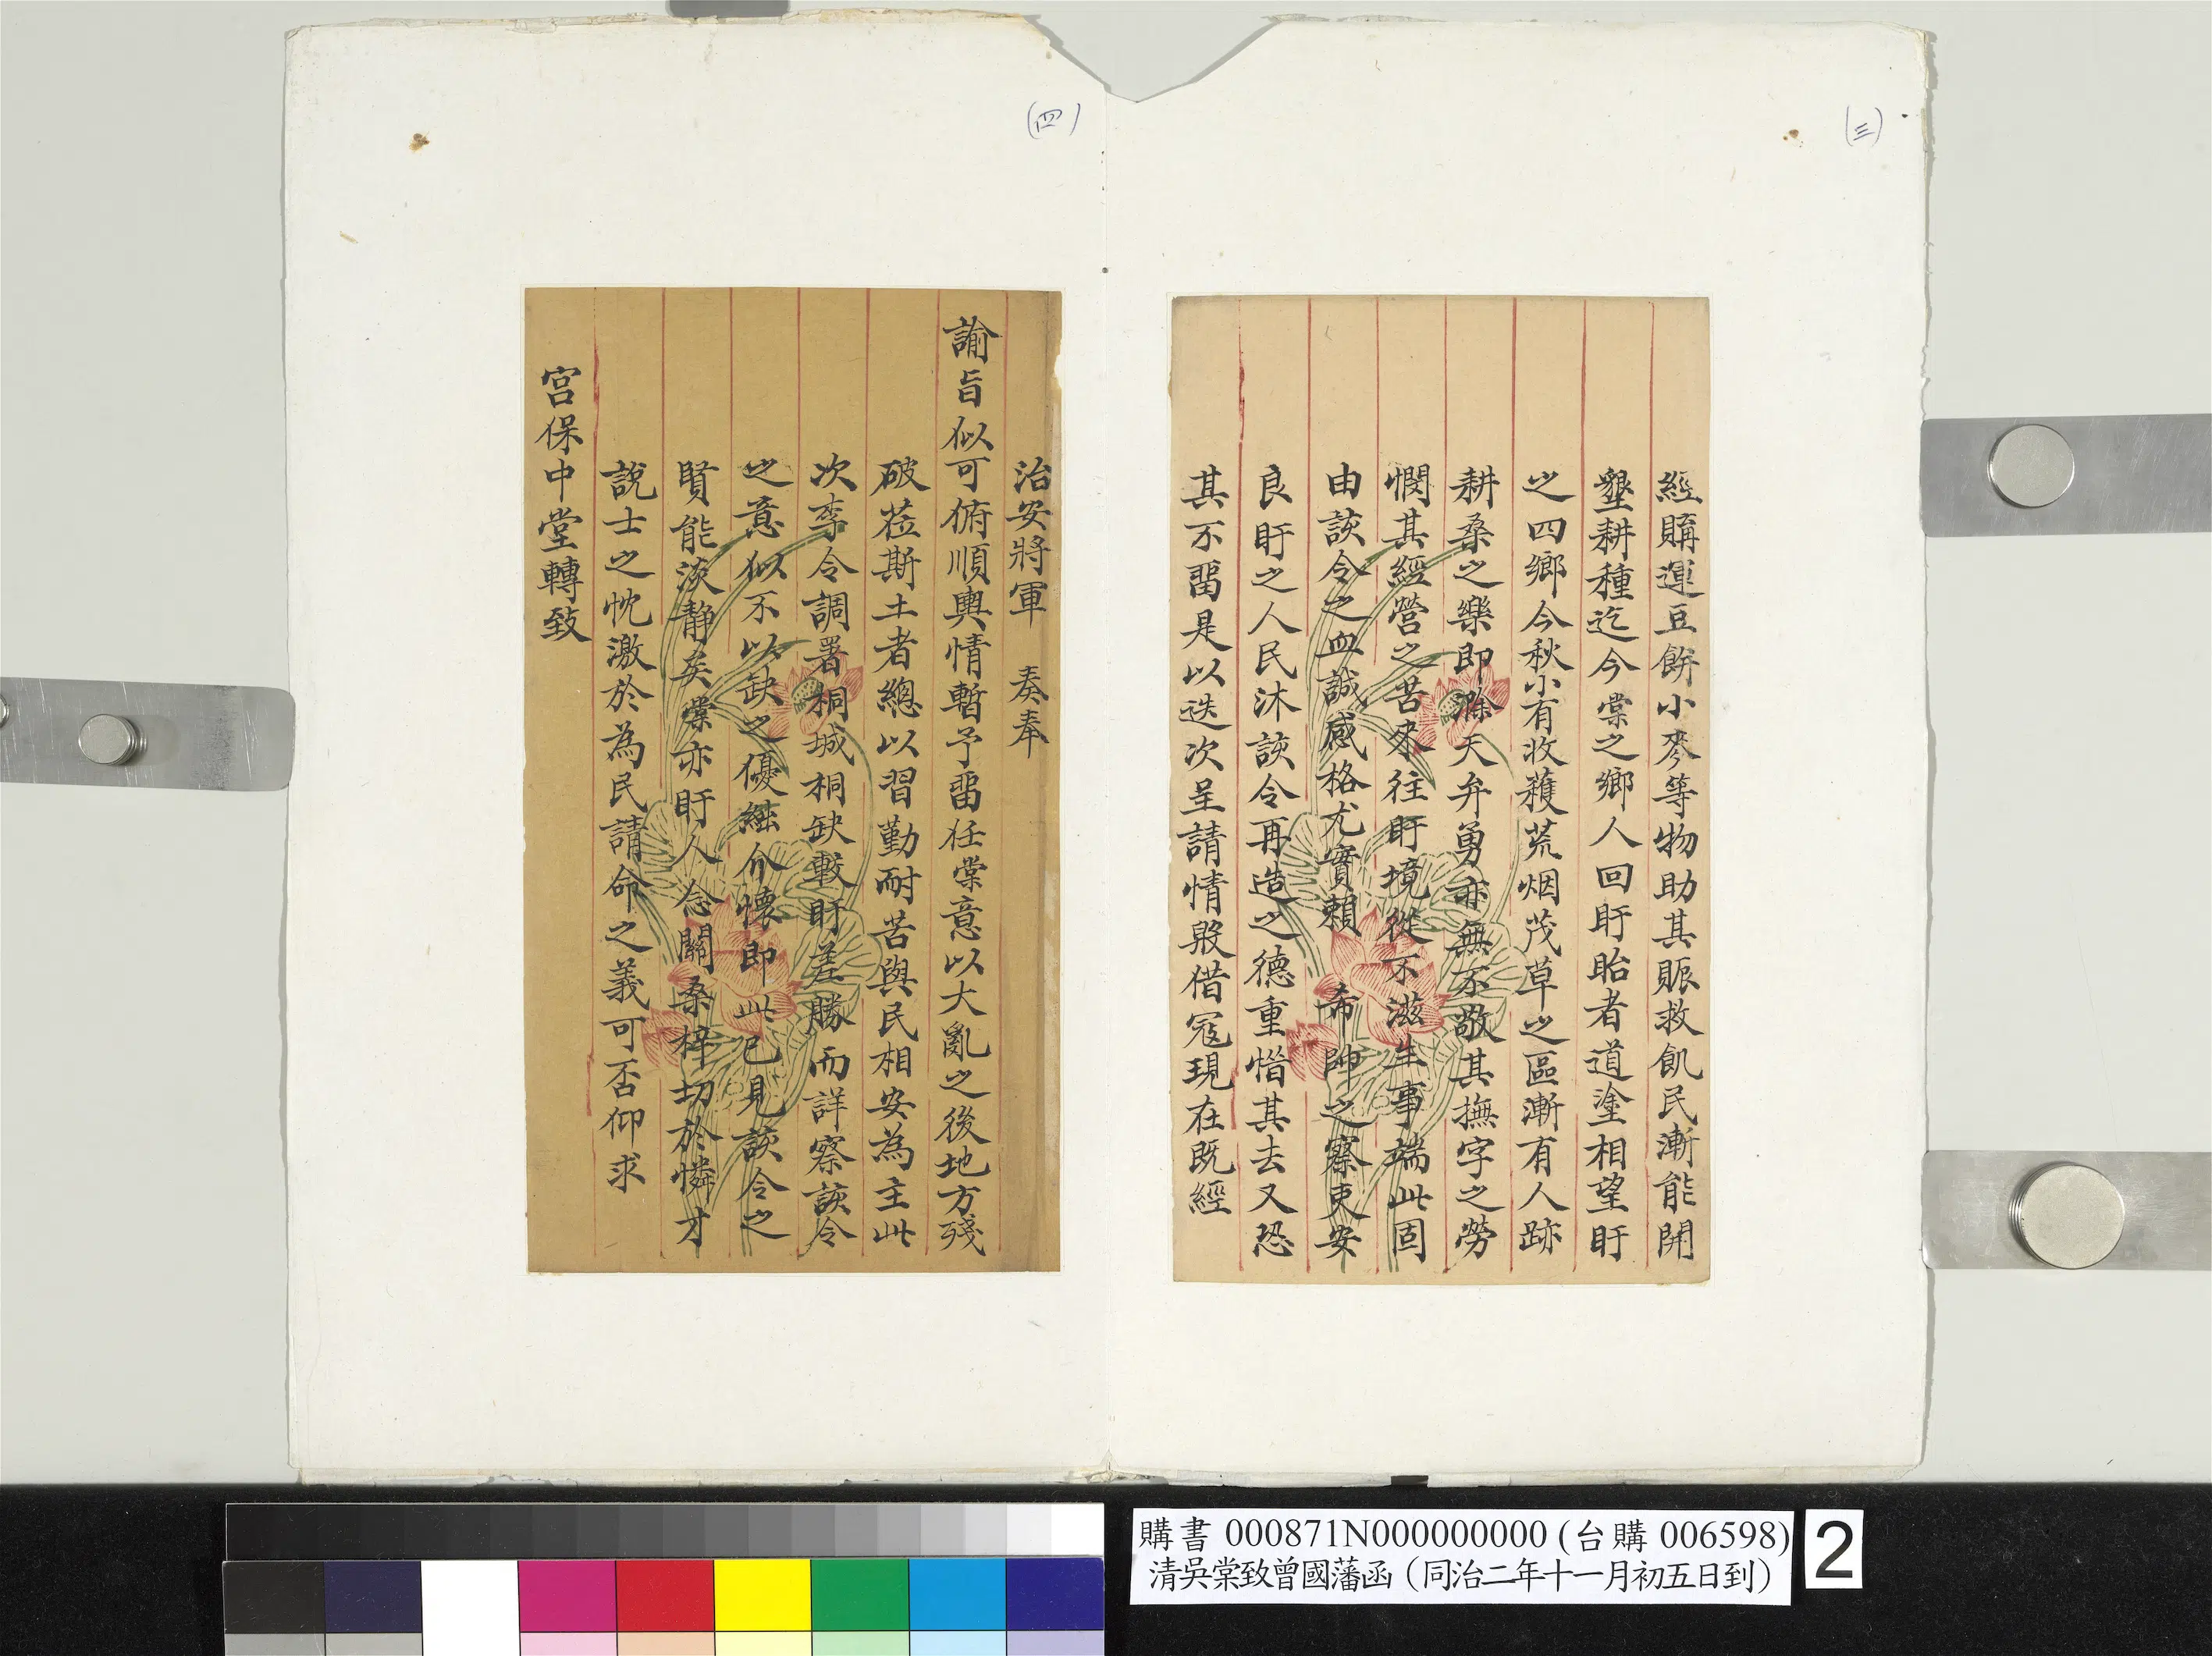 (三)
經購運豆餅小麥等物助其賑救飢民漸能開
墾耕種迄今棠之鄉人回盱眙者道塗相望盱
之四鄉今秋小有收穫荒烟茂草之區漸有人跡
耕桑之樂即滁天弁勇亦無不敬其撫字之勞
憫其經營之苦來往盱境從不滋生事端此固
由該令之血誠感格尤實賴 希帥之察吏安
良盱之人民沐該令再造之德重惜其去又恐
其不畱是以迭次呈請情殷借寇現在既經
(四)
治安將軍 奏奉
諭旨似可俯順輿情暫予畱任棠意以大亂之後地方殘
破蒞斯土者總以習勤耐苦與民相安為主此
次李令調署桐城桐缺較盱差勝而詳察該令
之意似不以缺之優絀介懷即此已見該令之
賢能淡靜矣棠亦盱人 念關桑梓切於憐才
說士之忱激於為民請命之義可否仰求
宮保中堂轉致
購書 000871N000000000 (台購 006598)
清吳棠致曾國藩函（同治二年十一月初五日到）
2